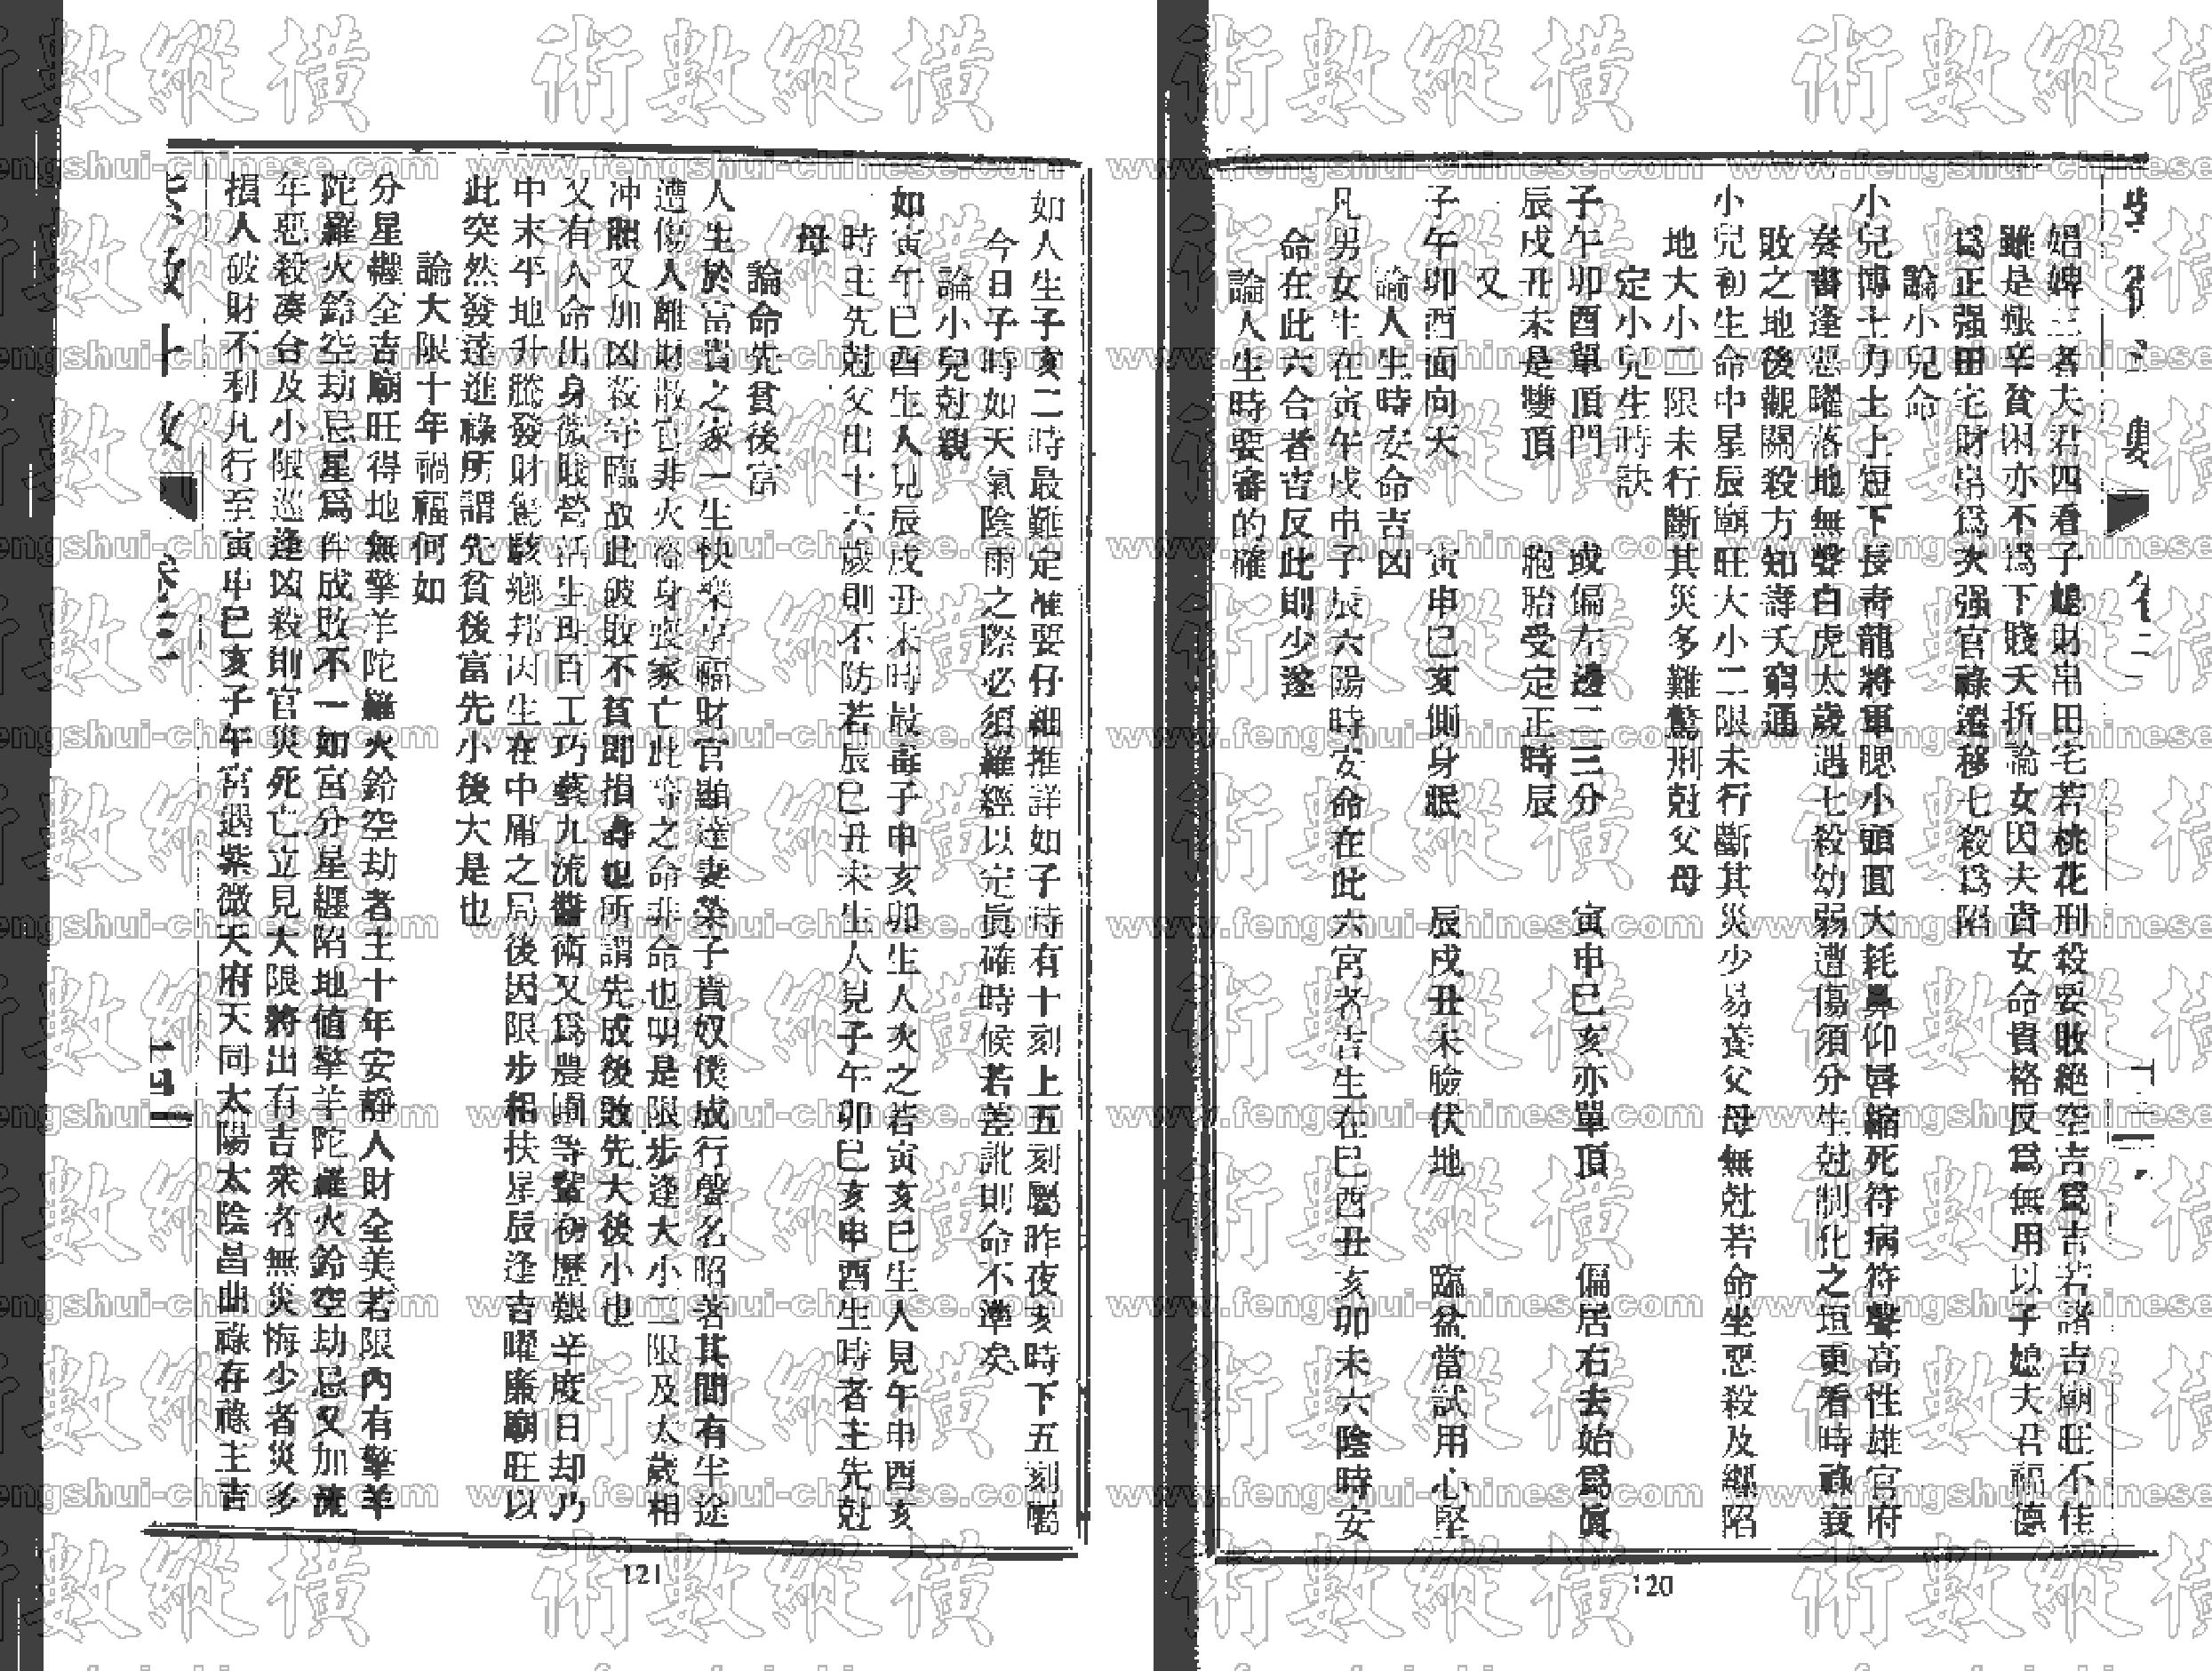 娼婢三者夫君四看子媳財帛田宅若桃花刑殺要敗絕空吉爲吉若諸吉廟旺不佳
雖是艱辛貧困亦不爲下賤夭折論女因夫貴女命貴格反爲無用以子媳夫君福德
爲正强田宅財帛爲次强官祿遷移七殺爲陷
論小兒命
小兒博士力士上短下長青龍將軍腮小頭圓大耗鼻仰唇縮死符病符聲高性雄官府
奏書逢惡曜落地無聲白虎太歲遇七殺幼弱遭傷須分生尅制化之垣更看時祿衰
敗之地後觀關殺方知壽夭窮通
小兒初生命中星辰廟旺大小二限未行斷其災少易養父母無尅若命坐惡殺及纏陷
地大小二限未行斷其災多難驚刑尅父母
定小兒生時訣
子午卯酉單頂門 或偏左邊二三分 寅申巳亥亦單頂 偏居右去始爲眞
辰戌丑未是雙頂 胞胎受定正時辰
又
子午卯酉面向天 寅申巳亥側身眠 辰戌丑未臉伏地 臨盆當試用心堅
論人生時安命吉凶
凡男女生在寅午戌申子辰六陽時安命在此六宮者吉生在巳酉丑亥卯未六陰時安
命在此六合者吉反此則少遂
論人生時要審的確
120
如人生子亥二時最難定准要仔細推詳如子時有十刻上五刻屬昨夜亥時下五刻屬
今日子時如天氣陰雨之際必須羅經以定眞確時候若差訛則命不準矣
論小兒尅親
如寅午巳酉生人見辰戌丑未時最毒子申亥卯生人次之若寅亥巳生人見午申酉亥
時主先尅父出十六歲則不防若辰巳丑未生人見子午卯巳亥申酉生時者主先尅
母
論命先貧後富
人生於富貴之家一生快樂享福財官顯達妻榮子貴奴僕成行聲名昭著其間有半途
遭傷人離財散官非火盜身喪家亡此等之命非命也明是限步逢大小二限及太歲相
冲照又加凶殺守臨故此破敗不貧即損壽也所謂先成後敗先大後小也
又有人命出身微賤營活生理百工巧藝九流醫術又爲農圃等輩初歷艱辛度日却乃
中末平地升騰發財驚駭鄉邦因生在中庸之局後因限步相扶星辰逢吉曜廉廟旺以
此突然發達進祿所謂先貧後富先小後大是也
論大限十年禍福何如
分星纏全吉廟旺得地無擎羊陀羅火鈴空劫者主十年安靜人財全美若限內有擎羊
陀羅火鈴空劫忌星爲伴成敗不一如宮分星纏陷地値擎羊陀羅火鈴空劫忌又加流
年惡殺湊合及小限巡逢凶殺則官災死亡立見大限將出有吉來者無災悔少者災多
損人破財不利凡行至寅申巳亥子午宮遇紫微天府天同太陽太陰昌曲祿存祿主吉
卷三
十四
121
術數縱橫
www.fengshui-chinese.com